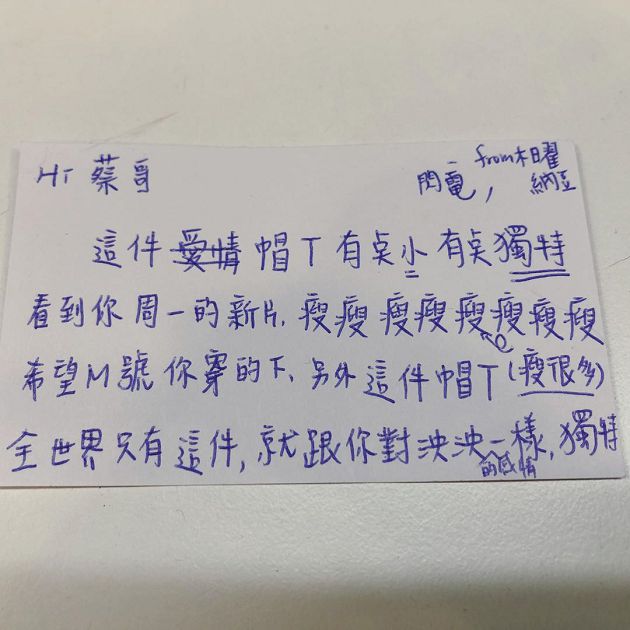 Hi 蔡哥
閃電, from木曜
納豆
這件愛情帽T有点小有点獨特
看到你周一的新片,瘦瘦瘦瘦瘦瘦瘦瘦
希望M號你穿的下、另外這件帽T(瘦很多)
全世界只有這件,就跟你對泱泱一樣,獨特
的感情